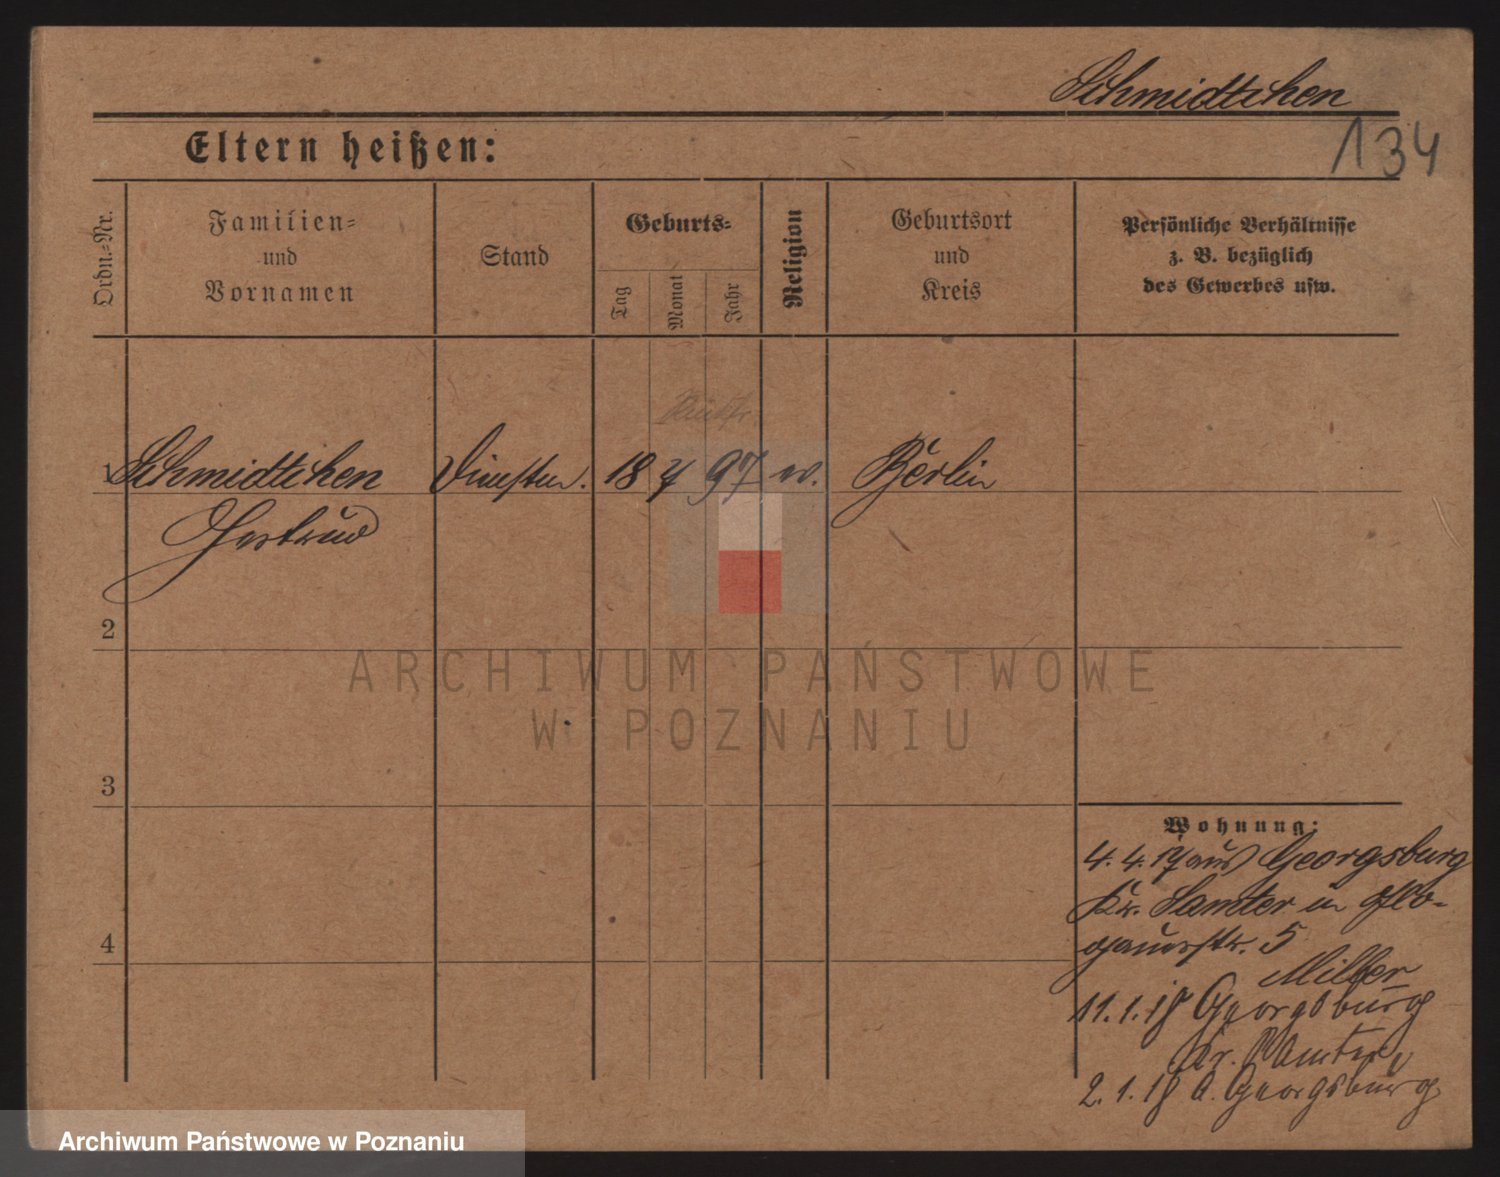 Schmidtchen
134
Eltern heißen:
Ordn.=Nr.
Familien=
und
Vornamen
Stand
Geburts=
Tag
Monat
Jahr
Religion
Geburtsort
und
Kreis
Persönliche Verhältnisse
z. B. bezüglich
des Gewerbes usw.
1 Schmidtchen 18 4 97 Berlin
Gertrud
2
3
4
Wohnung:
4. 4. 17 aus Georgsburg
Kr. Samter in Glo-
gauerstr. 5
Miller
11. 1. 18 Georgsburg
Kr. Samter
2. 1. 18 a. Georgsburg
ARCHIWUM PAŃSTWOWE
W POZNANIU
Archiwum Państwowe w Poznaniu